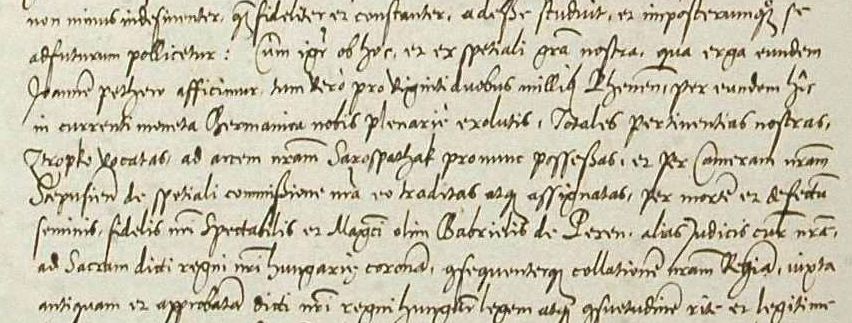 non minus indesinenter, q̃ fideliter et constanter, adesse studuit, et imposterumq3 se
adfuturum pollicetur: Cũm igr̃ ob hoc, et ex spetiali grã nostra, qua erga eundem
Joannẽ pethew afficimur, tum verò pro viginti duobus milliб Rhenen̄, per eundem hr̃c
in currenti moneta Germanica nobis plenariè exolutis, Totales pertinentias nostras,
Ztropko vocatas, ad arcem nr̃am Sarospathak pronunc possessas, et per Cameram nr̃am
Scepusien̄ de spetiali commissione nr̃a eo traditas atq3 assignatas, per mortẽ et defectũ
seminis, fidelis nr̃i Spectabilis et Magc̃i olim Gabrielis de Peren, alias Judicis Curiẽ nr̃ae,
ad Sacram dicti regni nr̃i hungarię coronã, cõsequenterq3 collationẽ nr̃am Regiã, iuxta
antiquam et approbatã dicti nr̃i regni hungariẽ legem atq3 cõsuetudinẽ rite et legitime